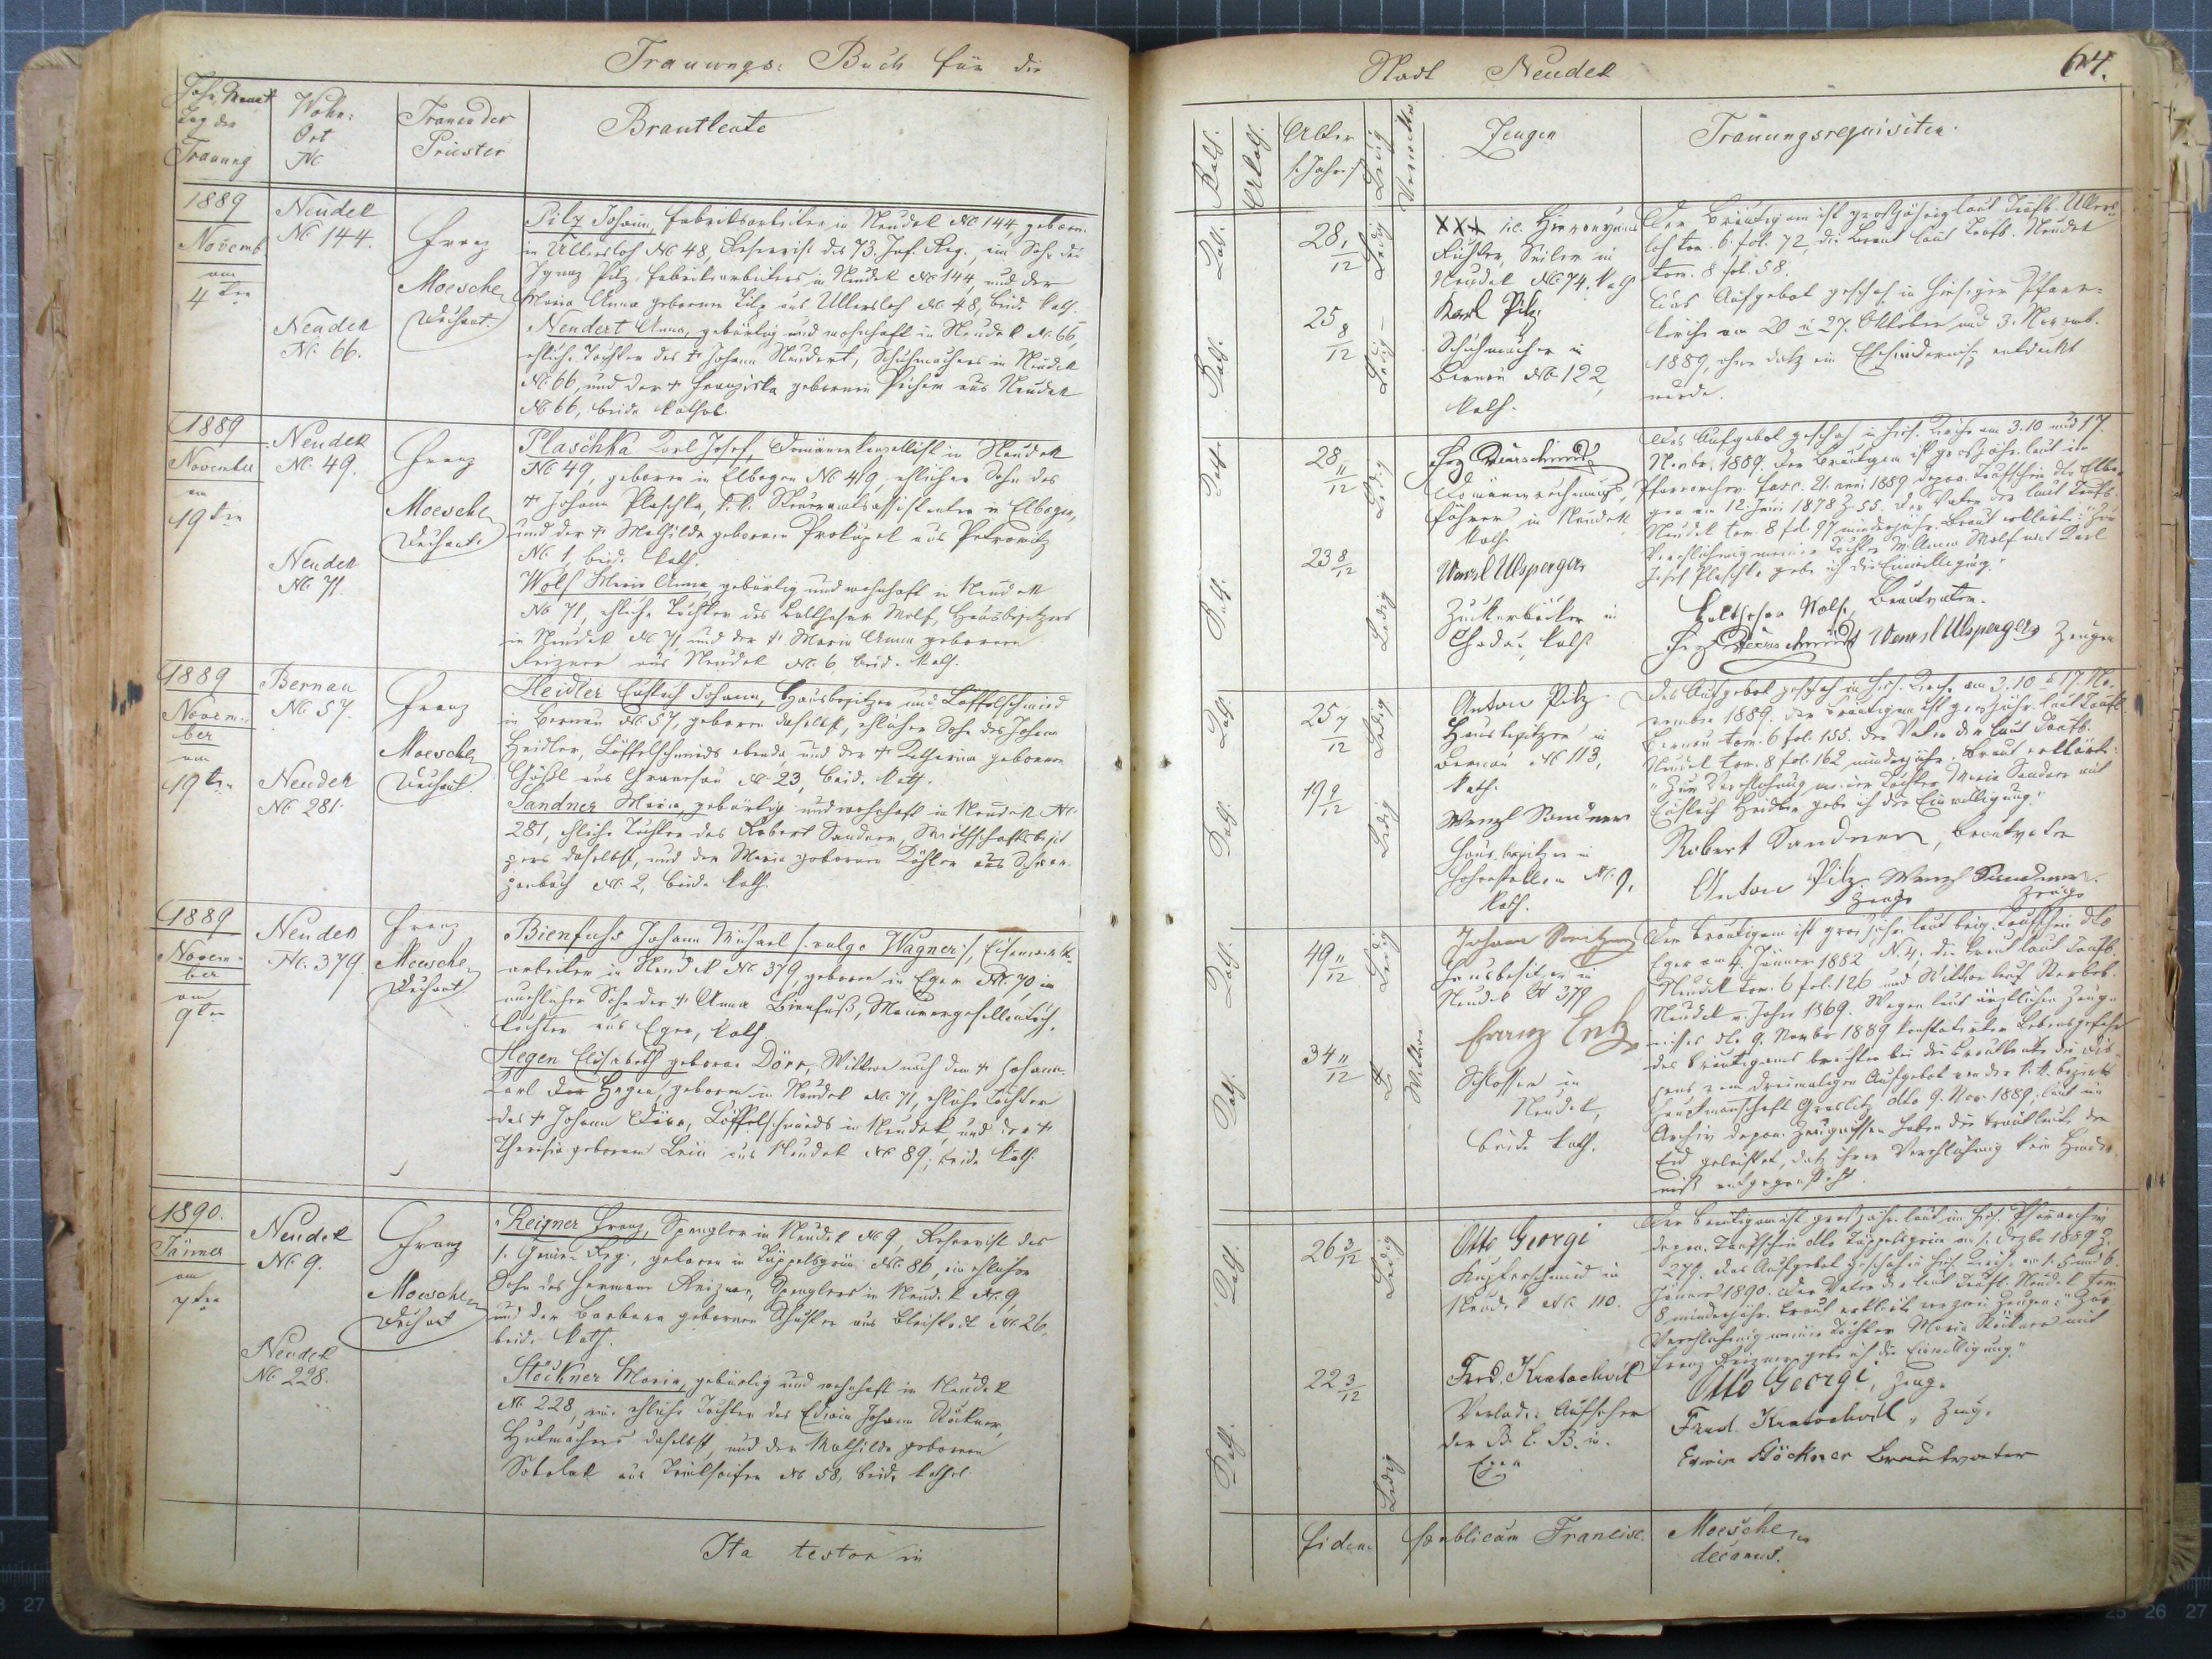 Trauungs: Buch für die
Jahr, Monat
Tag der
Trauung
Wohn:
Ort
No
Trauender
Priester
Brautleute
1889
Novemb.
am
4ten
Neudek
No 144.
Neudek
No. 66.
Franz
Moesche
Dechant.
Pilz Johann, Fabriksarbeiter in Neudek No 144, geboren
in Ullersloh No 48, Reservist des 73. Inf. Reg., ein Sohn des
Ignaz Pilz, Fabriksarbeiters in Neudek No 144, und der
Maria Anna geborenen Pilz aus Ullersloh No. 48, beide kath.
Neudert Anna, gebürtig und wohnhaft in Neudek No. 66,
eheliche Tochter des † Johann Neudert, Schuhmachers in Neudek
No. 66, und der † Franziska geborenen aus Neudek
No 66, beide kathol.
1889
November
am
19ten
Neudek
No. 49.
Neudek
No. 71
Franz
Moesche
Dechant.
Plaschka Karl Josef, Domänenkanzellist in Neudek
No 49, geboren in Elbogen No 419, ehelicher Sohn des
† Johann Plaschka, k.k. Steueramtsassistenten in Elbogen,
und der † Mathilde geborenen Prokupek aus Petrowitz
No 1, beide kath.
Wolf Maria Anna, gebürtig und wohnhaft in Neudek
No 71, eheliche Tochter des Balthasar Wolf, Hausbesitzers
in Neudek No 71, und der † Maria Anna geborenen
Reizner aus Neudek No. 6, beide kath.
1889
Novem-
ber
am
19ten
Bernau
No 57.
Neudek
No. 281.
Franz
Moesche
Dechant.
Heidler Johann, Hausbesitzer und Löffelschmied
in Bernau No. 57, geboren daselbst, ehelicher Sohn des Johann
Heidler, Löffelschmieds ebenda, und der † Katharina geborenen
aus No 23, beide kath.
Sandner Maria, gebürtig und wohnhaft in Neudek No.
281, eheliche Tochter des Robert Sandner, Wirthschaftsbesit
zers daselbst, und der Maria geborenen Köhler aus Schwar-
zenbach No. 2, beide kath.
1889
Novem-
ber
am
9ten
Neudek
No. 379.
Franz
Moesche
Dechant
Bienfuhs Johann Michael /: vulgo Wagner :/, Eisenwerks-
arbeiter in Neudek No 379, geboren in Eger No. 70, ein
unehelicher Sohn der † Anna Bienfuß, Maurergesellens
tochter aus Eger, kath.
Hegen Elisabeth geborne Dörr, Wittwe nach dem † Johann
Karl Hegen, geboren in Neudek No. 71, eheliche Tochter
des † Johann Dörr, Löffelschmieds in Neudek, und der †
Theresia geborenen aus Neudek No 89; beide kath.
1890.
Jänner
am
7ten
Neudek
No 9.
Neudek
No. 228.
Franz
Moesche
Dechant
Reizner Franz, Spengler in Neudek No 9, Reservist des
1. Reg., geboren in Tüppelsgrün No. 86, ein ehelicher
Sohn des Hermann Reizner, Spenglers in Neudek No. 9,
und der Barbara geborenen Schuster aus Bleistadt No. 26,
beide kath.
Stöckner Maria, gebürtig und wohnhaft in Neudek
No 228, eine eheliche Tochter des Edwin Johann Stöckner,
Hutmachers daselbst, und der Mathilde geborenen
aus Trinkseifen No 58, beide kathol.
Ita testor in
Stadt Neudek
64.
Kath.
Akath.
Alter
/: Jahre :/
Ledig
Verwittw.
Zeugen
Trauungsrequisiten.
Kath.
Kath.
28 1/12
25 8/12
Ledig
Ledig
XXX ic. Hieronymus
Richter, Seiler in
Neudek No 74. kath
Karl Pilz
Schuhmacher in
Bernau No 122,
kath.
Der Bräutigam ist großjährig laut Taufb. Ullers-
loh tom. 6. fol. 72, die Braut laut Taufb. Neudek
tom. 8 fol. 58.
Das Aufgebot geschah in hiesiger Pfarr-
kirche am 20 u 27. Oktober und 3. Novemb.
1889, ohne daß ein Ehehinderniß entdeckt
wurde.
Kath.
Kath.
28 11/12
23 8/12
Ledig
Ledig
Domänenrechnungs-
führer in Neudek
kath.
Wenzl Ulsperger
Zuckerbäcker in
Chodau, kath.
Das Aufgebot geschah in hies. Kirche am 3. 10 und 17.
Novbr. 1889. Der Bräutigam ist großjähr. laut im
Pfarrarchiv fasc. 21. anni 1889 depon. Taufschein dto Elbo-
gen am 12. Juni 1878 Z. 55. Der Vater der laut Taufb.
Neudek tom. 8 fol. 97 minderjähr. Braut erklärte: „Zur
Verehelichung meiner Tochter M. Anna Wolf mit Karl
Josef Plaschka gebe ich die Einwilligung.“
Balthasar Wolf, Brautvater.
Wenzl Ulsperger Zeugen
Kath.
Kath.
25 7/12
19 9/12
Ledig
Ledig
Anton Pilz
Hausbesitzer in
Bernau No 113,
kath.
Wenzl Sandner
Hausbesitzer in
Hohenstollen No. 9,
kath.
Das Aufgebot geschah in hies. Kirche am 3. 10 u 17. No-
vember 1889. Der Bräutigam ist großjähr. laut Taufb.
Bernau tom. 6 fol. 155. Der Vater der laut Taufb.
Neudek tom. 8 fol. 162 minderjähr. Braut erklärte:
„Zur Verehelichung meiner Tochter Maria Sandner mit
Heidler gebe ich die Einwilligung.“
Robert Sandner, Brautvater
Anton Pilz Wenzl Sandner.
Zeuge Zeuge
Kath.
Kath.
49 11/12
34 11/12
Ledig
Wittwe
Johann
Hausbesitzer in
Neudek No 379
Franz
Schlosser in
Neudek,
beide kath.
Der Bräutigam ist großjähr. laut beig. Taufschein dto
Eger am 4. Jänner 1882 N. 4, die Braut laut Taufb.
Neudek tom. 6 fol. 126 und Wittwe laut Sterbeb.
Neudek v. Jahre 1869. Wegen laut ärztlichen Zeug-
nisses dto 9. Novbr 1889 konstatirter Lebensgefahr
des Bräutigams brachten bei die Brautleute die Dis-
pens vom dreimaligen Aufgebot von der k. k. Bezirks
hauptmannschaft Graslitz dto 9. Nov. 1889; laut im
Archiv depon. Zeugnissen haben die Brautleute den
Eid geleistet, daß ihrer Verehelichung kein Hinder-
niß entgegensteht.
Kath.
Kath.
26 3/12
22 3/12
Ledig
Ledig
Otto Georgi
Kupferschmied in
Neudek No. 110.
Ferd. Kratochvil
Verlade-Aufseher
der B. E. B. in
Eger
Der Bräutigam ist großjähr. laut im hies. Pfarrarchiv
depon. Taufschein dto Tüppelsgrün am 1. Dezbr 1889 Z.
279. Das Aufgebot geschah in hies. Kirche am 1. 5 und 6.
Jänner 1890. Der Vater der laut Taufb. Neudek tom
8 minderjähr. Braut erklärte vor zwei Zeugen: „Zur
Verehelichung meiner Tochter Maria Stöckner mit
Franz Reizner gebe ich die Einwilligung.“
Otto Georgi, Zeuge
Ferd. Kratochvil, Zeuge
Edwin Stöckner Brautvater
fidem publicam Francisc. Moesche
decanus.